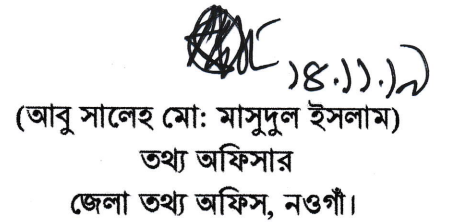 ১৪.১১.১৭
(আবু সালেহ মো: মাসুদুল ইসলাম)
তথ্য অফিসার
জেলা তথ্য অফিস, নওগাঁ।